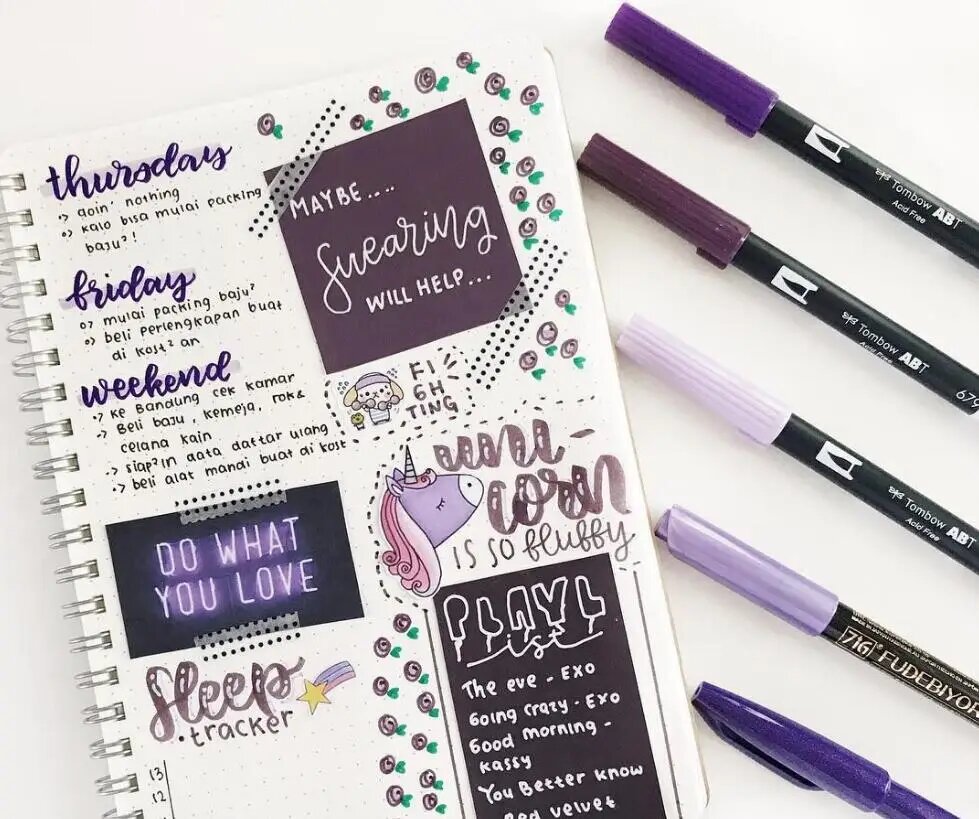 thursday
-> doin' nothing
-> kalo bisa mulai packing
baju?!
friday
-> mulai packing baju²
-> beli perlengkapan buat
di kost² an
weekend
-> ke Bandung cek kamar
-> Beli baju, kemeja, rok &
celana kain
-> siap²in data daftar ulang
-> beli alat mandi buat di kost
MAYBE....
Swearing
WILL HELP...
FI
GH
TING
uni-
corn
IS SO fluffy
DO WHAT
YOU LOVE
Sleep
tracker
13
12
PLAYL
ist
The eve - EXO
Going crazy - EXO
Good morning -
kassy
You Better know
Red velvet
Tombow ABT
Acid Free
Tombow ABT
Acid Free
679
Tombow ABT
Acid Free
FUDEBIYO